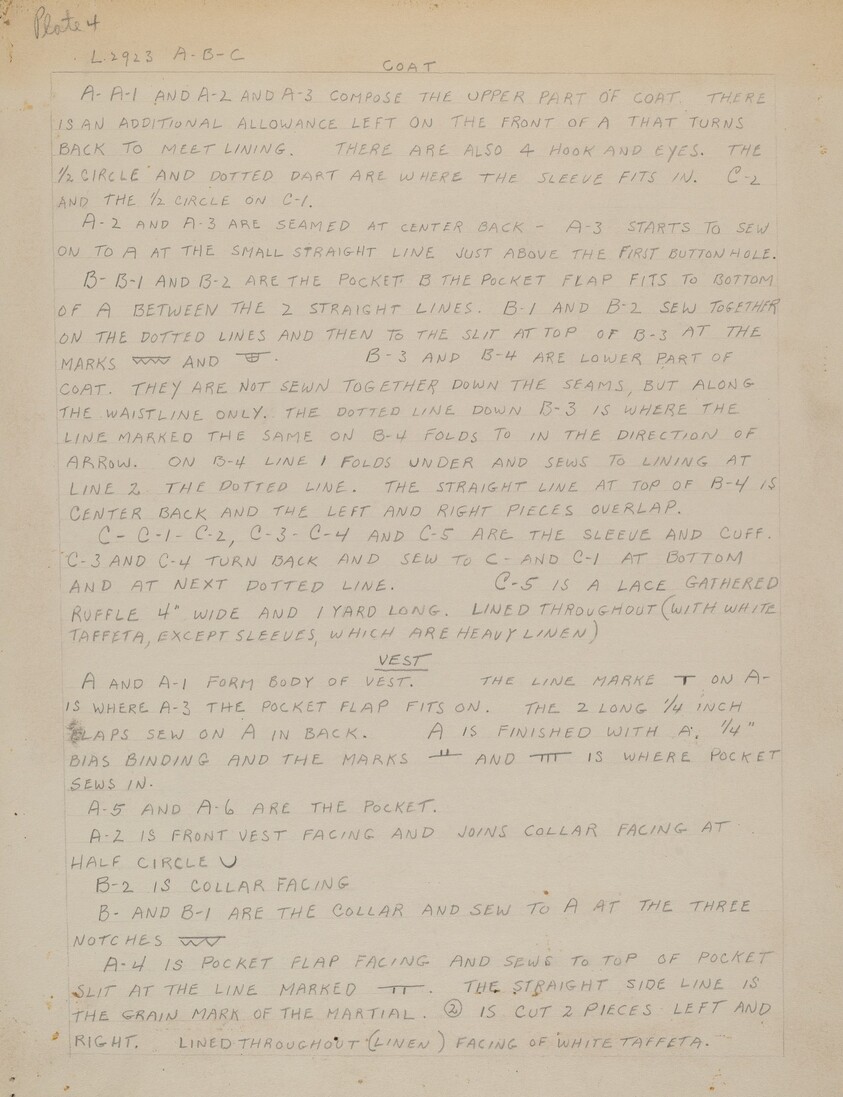 Plate 4
L.2923 A-B-C
COAT
A- A-1 AND A-2 AND A-3 COMPOSE THE UPPER PART OF COAT. THERE
IS AN ADDITIONAL ALLOWANCE LEFT ON THE FRONT OF A THAT TURNS
BACK TO MEET LINING. THERE ARE ALSO 4 HOOK AND EYES. THE
1/2 CIRCLE AND DOTTED DART ARE WHERE THE SLEEVE FITS IN. C-2
AND THE 1/2 CIRCLE ON C-1.
A-2 AND A-3 ARE SEAMED AT CENTER BACK - A-3 STARTS TO SEW
ON TO A AT THE SMALL STRAIGHT LINE JUST ABOVE THE FIRST BUTTON HOLE.
B- B-1 AND B-2 ARE THE POCKET B THE POCKET FLAP FITS TO BOTTOM
OF A BETWEEN THE 2 STRAIGHT LINES. B-1 AND B-2 SEW TOGETHER
ON THE DOTTED LINES AND THEN TO THE SLIT AT TOP OF B-3 AT THE
MARKS AND . B-3 AND B-4 ARE LOWER PART OF
COAT. THEY ARE NOT SEWN TOGETHER DOWN THE SEAMS, BUT ALONG
THE WAISTLINE ONLY. THE DOTTED LINE DOWN B-3 IS WHERE THE
LINE MARKED THE SAME ON B-4 FOLDS TO IN THE DIRECTION OF
ARROW. ON B-4 LINE 1 FOLDS UNDER AND SEWS TO LINING AT
LINE 2 THE DOTTED LINE. THE STRAIGHT LINE AT TOP OF B-4 IS
CENTER BACK AND THE LEFT AND RIGHT PIECES OVERLAP.
C- C-1- C-2, C-3- C-4 AND C-5 ARE THE SLEEVE AND CUFF.
C-3 AND C-4 TURN BACK AND SEW TO C- AND C-1 AT BOTTOM
AND AT NEXT DOTTED LINE. C-5 IS A LACE GATHERED
RUFFLE 4" WIDE AND 1 YARD LONG. LINED THROUGHOUT (WITH WHITE
TAFFETA, EXCEPT SLEEVES, WHICH ARE HEAVY LINEN)
VEST
A AND A-1 FORM BODY OF VEST. THE LINE MARKE ON A-
IS WHERE A-3 THE POCKET FLAP FITS ON. THE 2 LONG 1/4 INCH
FLAPS SEW ON A IN BACK. A IS FINISHED WITH A, 1/4"
BIAS BINDING AND THE MARKS AND IS WHERE POCKET
SEWS IN.
A-5 AND A-6 ARE THE POCKET.
A-2 IS FRONT VEST FACING AND JOINS COLLAR FACING AT
HALF CIRCLE
B-2 IS COLLAR FACING
B- AND B-1 ARE THE COLLAR AND SEW TO A AT THE THREE
NOTCHES
A-4 IS POCKET FLAP FACING AND SEWS TO TOP OF POCKET
SLIT AT THE LINE MARKED . THE STRAIGHT SIDE LINE IS
THE GRAIN MARK OF THE MARTIAL. ② IS CUT 2 PIECES LEFT AND
RIGHT. LINED THROUGHOUT (LINEN) FACING OF WHITE TAFFETA.